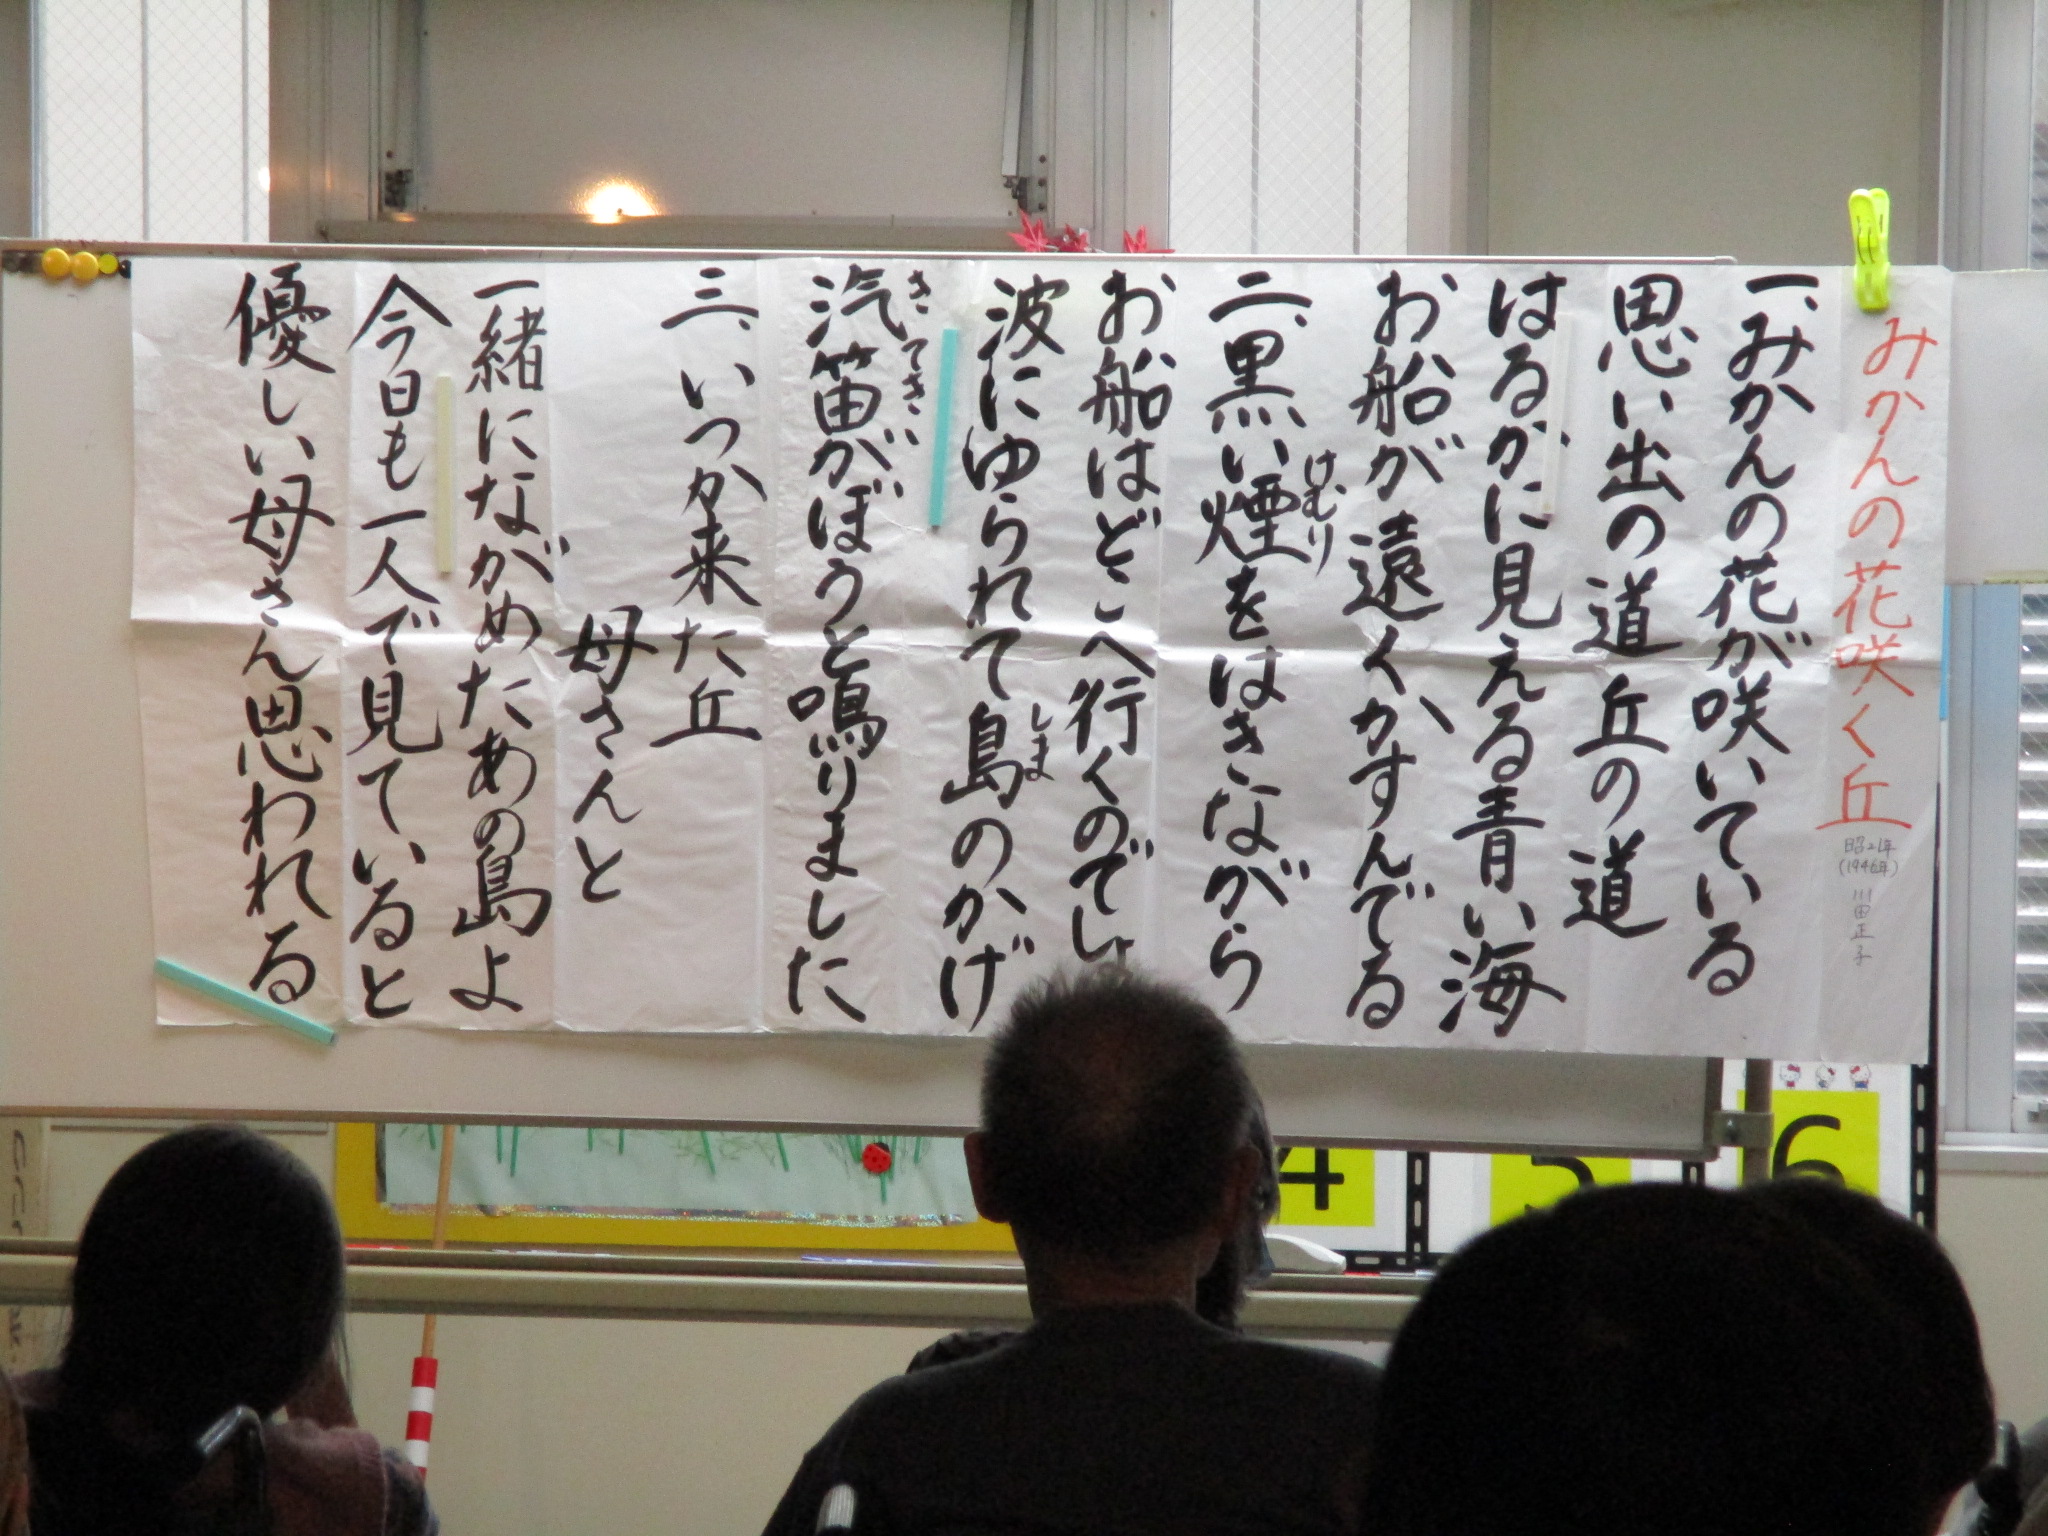 みかんの花咲く丘
昭21年
(1946年)
川田正子
一、みかんの花が咲いている
思い出の道 丘の道
はるかに見える青い海
お船が遠くかすんでる
二、黒い煙をはきながら
けむり
お船はどこへ行くのでしょ
波にゆられて島のかげ
しま
汽笛がぼうと鳴りました
きてき
三、いつか来た丘
母さんと
一緒にながめたあの島よ
今日も一人で見ていると
優しい母さん思われる
4
5
6